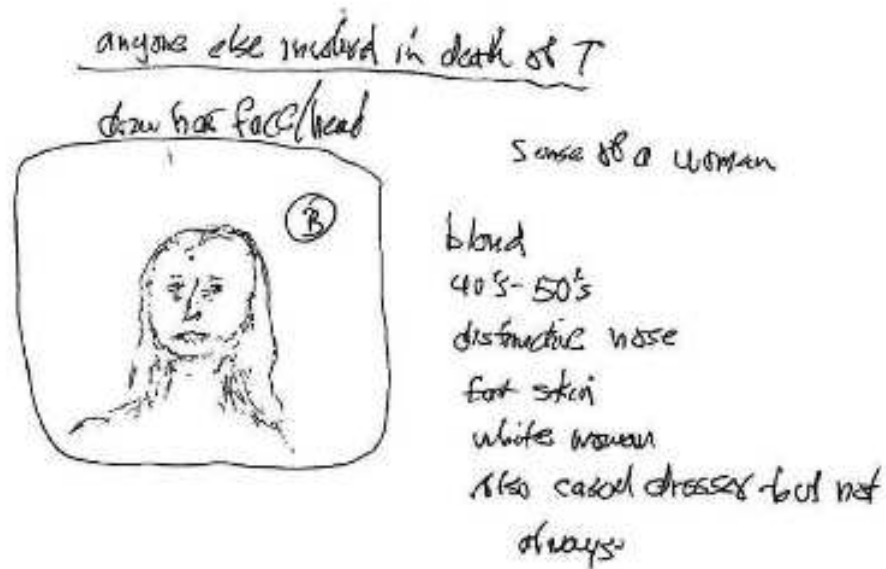 anyone else involved in death of T
draw her face/head
B
sense of a woman
blond
40's-50's
distinctive nose
fair skin
white woman
also casual dresser-but not
always